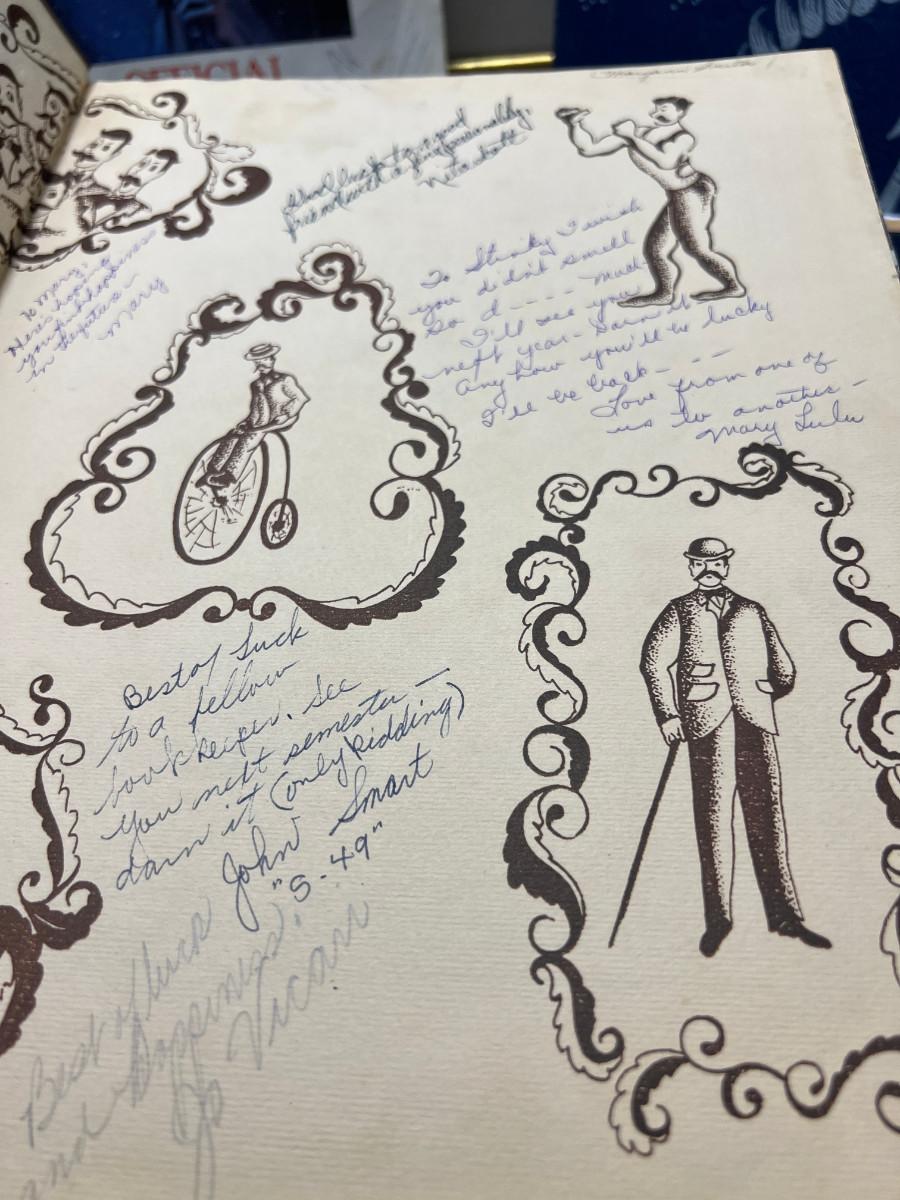 OFFICIAL
Good luck to a good
friend with a fine personality.
To Mary,
Here's hoping
you find happiness
in
Mary
To Stinky I wish
you didn't smell
so d---- much
I'll see you
next year - Darn it
Anyhow you'll be lucky
I'll be back - - -
Love from one of
us to another -
Mary Lulu
Best of Luck
to a fellow
bookkeeper. See
you next semester -
darn it (only kidding)
John Smart
"S-49"
Best of luck
and Happiness!
Jo Vicari